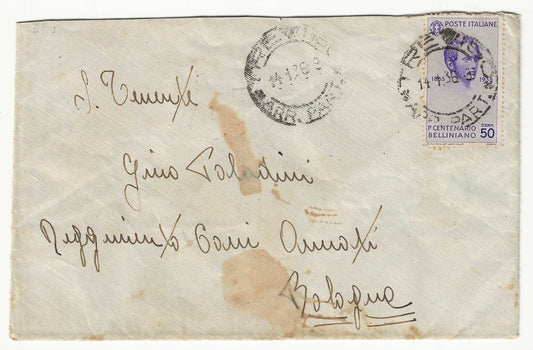 POSTE ITALIANE
1835 1935
Iº CENTENARIO
BELLINIANO
CENT.
50
TREVISO
14.1.36
ARR. PART.
TREVISO
14.1.36
ARR. PART.
S. Tenente
Gino Paladini
Reggimento Carri Armati
Bologna